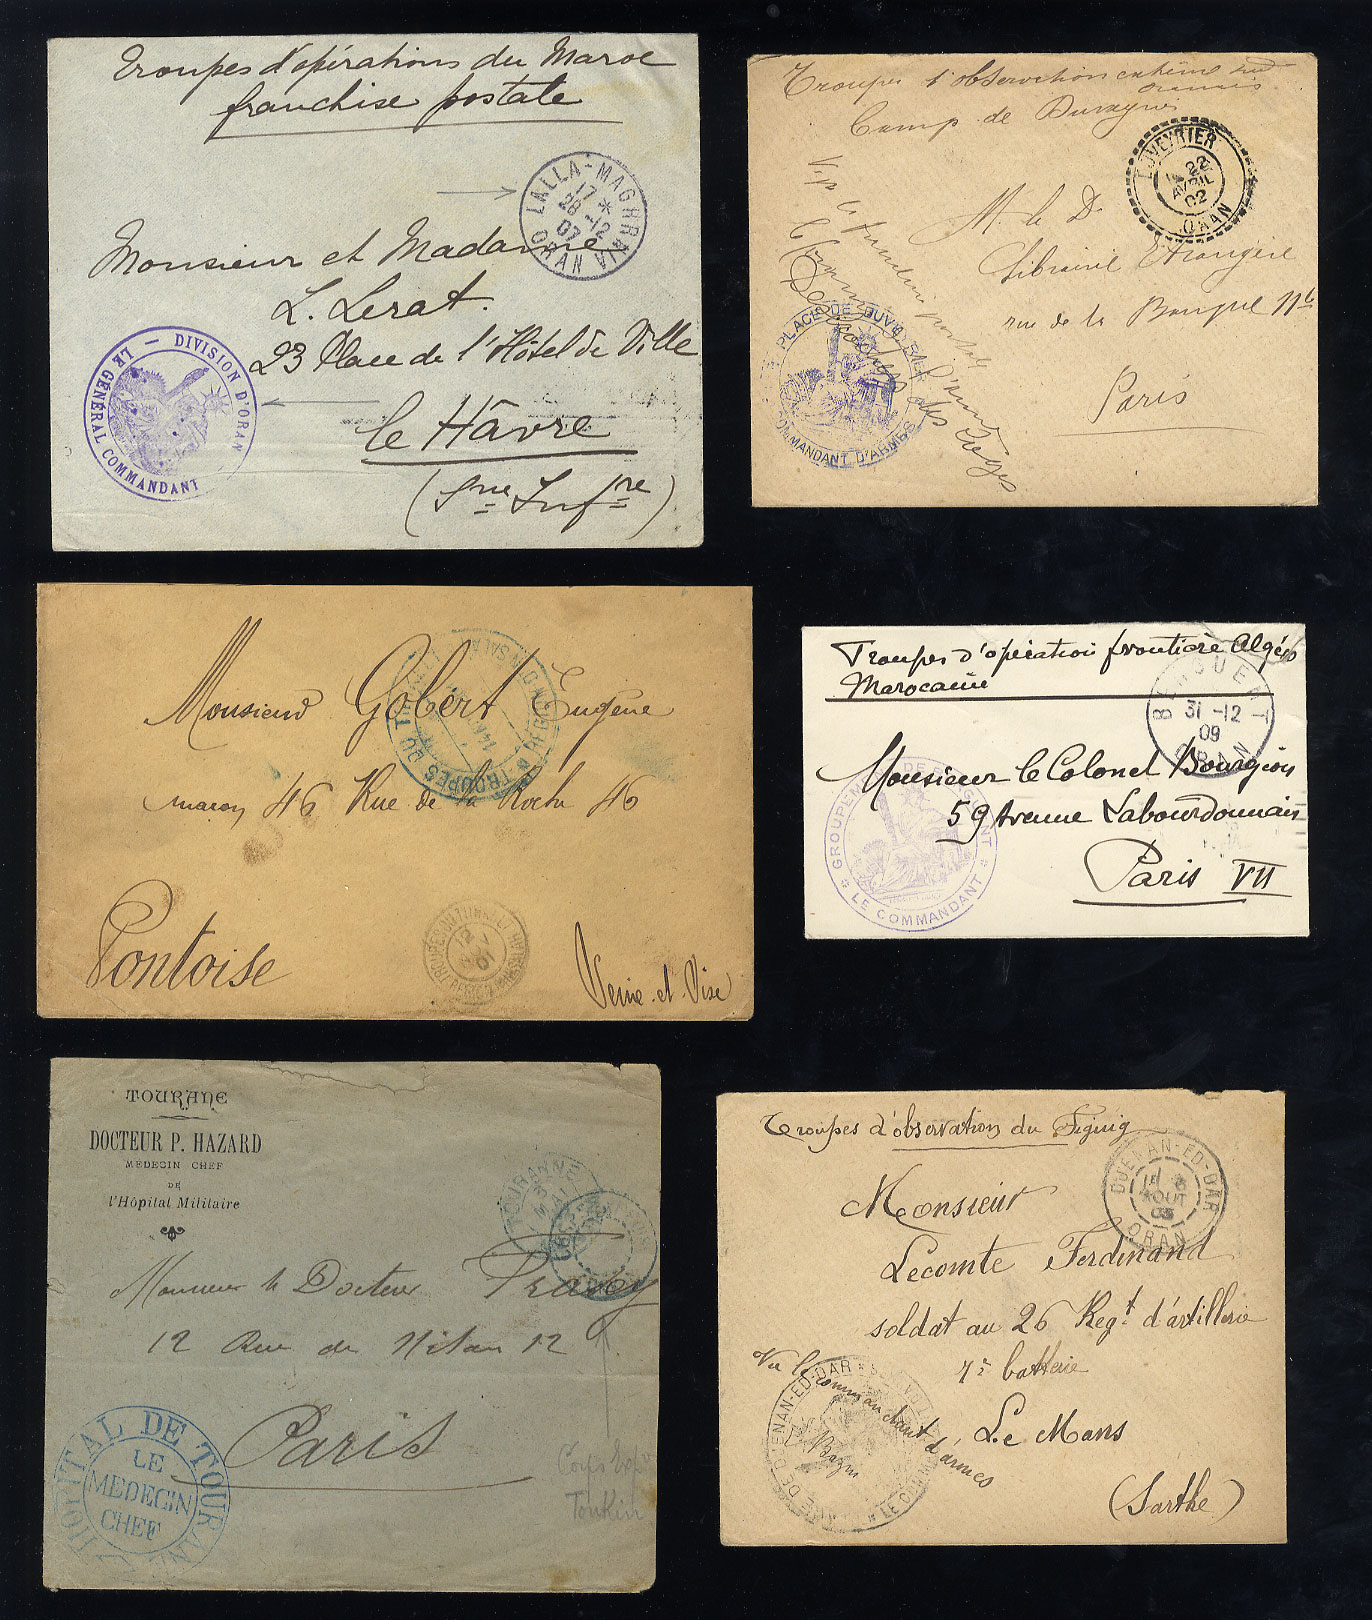 Troupes d'opérations du Maroc
franchise postale
LALLA-MAGHRNIA
17 *
28 -12
07
ORAN
Monsieur et Madame
L. Lerat.
23 Place de l'Hôtel de Ville
le Hâvre
(Sne Infre)
DIVISION D'ORAN
LE GÉNÉRAL COMMANDANT
Troupes d'observation extrême sud
oranais
Camp de Duveyrier
DUVEYRIER
22
AVRIL
02
ORAN
M. le Dr
Librairie Etrangère
rue de la Banque
Paris
PLACE DE DUVEYRIER
COMMANDANT D'ARMES
Monsieur Gobert Eugène
maçon 46 Rue de la Roche 46
Pontoise
Seine et Oise
TROUPES DU
REGION D'IN-SALAH
12
01
Troupes d'opération frontière Algéro
Marocaine
BERGUENT
31 -12
09
ORAN
Monsieur le Colonel Bourgeois
59 Avenue Labourdonnais
Paris VII
GROUPEMENT DE BERGUENT
LE COMMANDANT
TOURANE
DOCTEUR P. HAZARD
MEDECIN CHEF
DE
l'Hôpital Militaire
TOURANE
3
MAI
Monsieur le Docteur
12 Rue de 12
Paris
HOPITAL DE TOURANE
LE
MEDECIN
CHEF
Corps expre
Tonkin
Troupes d'observation du Figuig
DJENAN-ED-DAR
AOUT
03
ORAN
Monsieur
Lecomte Ferdinand
soldat au 26 Regt d'artillerie
4e batterie
Le Mans
(Sarthe)
Vu le commandant d'armes
DE DJENAN-ED-DAR